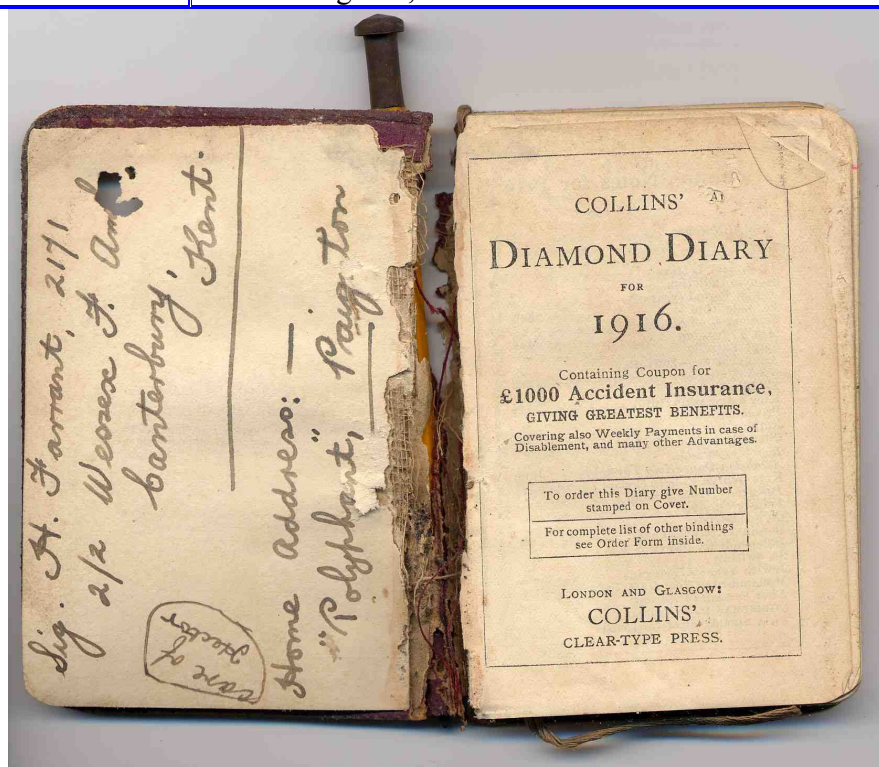 Sig. H. Farrant, 2171
2/2 Wessex F. Amb.
Canterbury,
Kent.
Home Address: —
"Polyphant," Paignton
care of
Hector
COLLINS'
DIAMOND DIARY
FOR
1916.
Containing Coupon for
£1000 Accident Insurance,
GIVING GREATEST BENEFITS.
Covering also Weekly Payments in case of
Disablement, and many other Advantages.
To order this Diary give Number
stamped on Cover.
For complete list of other bindings
see Order Form inside.
LONDON AND GLASGOW:
COLLINS',
CLEAR-TYPE PRESS.